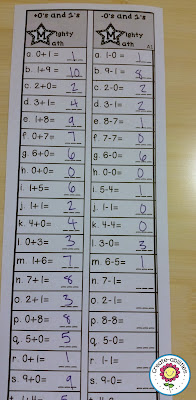 +0's and 1's
Mighty Math
a. 0+1= 1
b. 1+9= 10
c. 2+0= 2
d. 3+1= 4
e. 1+8= 9
f. 0+7= 7
g. 6+0= 6
h. 0+0= 0
i. 1+5= 6
j. 1+1= 2
k. 4+0= 4
l. 0+3= 3
m. 1+6= 7
n. 7+1= 8
o. 2+1= 3
p. 0+8= 8
q. 5+0= 5
r. 0+1= 1
s. 9+0= 9
t. 1+4= 5
-0's and 1's
Mighty Math
A2
a. 1-0= 1
b. 9-1= 8
c. 2-0= 2
d. 3-1= 2
e. 8-7= 1
f. 7-7= 0
g. 6-0= 6
h. 0-0= 0
i. 5-4= 1
j. 1-1= 0
k. 4-4= 0
l. 3-0= 3
m. 6-5= 1
n. 7-1=
o. 2-1=
p. 8-8=
q. 5-0=
r. 1-1=
s. 9-0=
Create-abilities